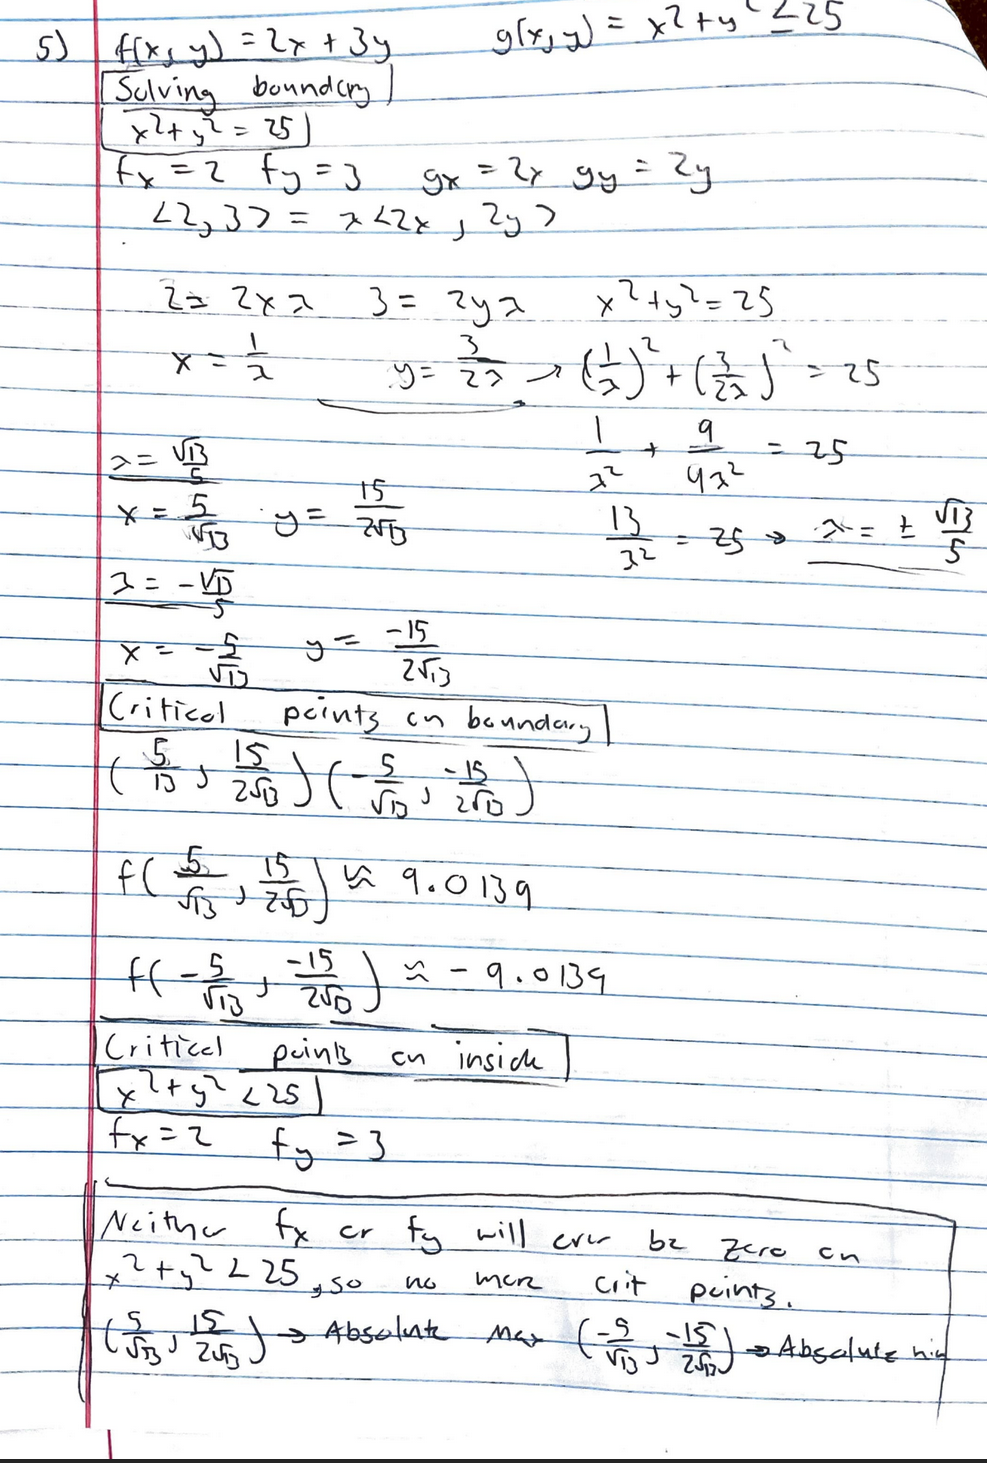 5) f(x, y) = 2x + 3y g(x, y) = x² + y² ≤ 25
Solving boundary
x² + y² = 25
fx = 2 fy = 3 gx = 2x gy = 2y
<2, 3> = λ<2x, 2y>
2 = 2xλ 3 = 2yλ x² + y² = 25
x = 1/λ y = 3/2λ → (1/λ)² + (3/2λ)² = 25
1/λ² + 9/4λ² = 25
λ = √13/5
x = 5/√13 y = 15/2√13
13/λ² = 25 → λ = ± √13/5
λ = -√13/5
x = -5/√13 y = -15/2√13
Critical points on boundary
(5/13, 15/2√13) (-5/√13, -15/2√13)
f(5/√13, 15/2√13) ≈ 9.0139
f(-5/√13, -15/2√13) ≈ -9.0139
Critical points on inside
x² + y² < 25
fx = 2 fy = 3
Neither fx or fy will ever be zero on
x² + y² < 25, so no more crit points.
(5/√13, 15/2√13) → Absolute Max (-5/√13, -15/2√13) → Absolute min